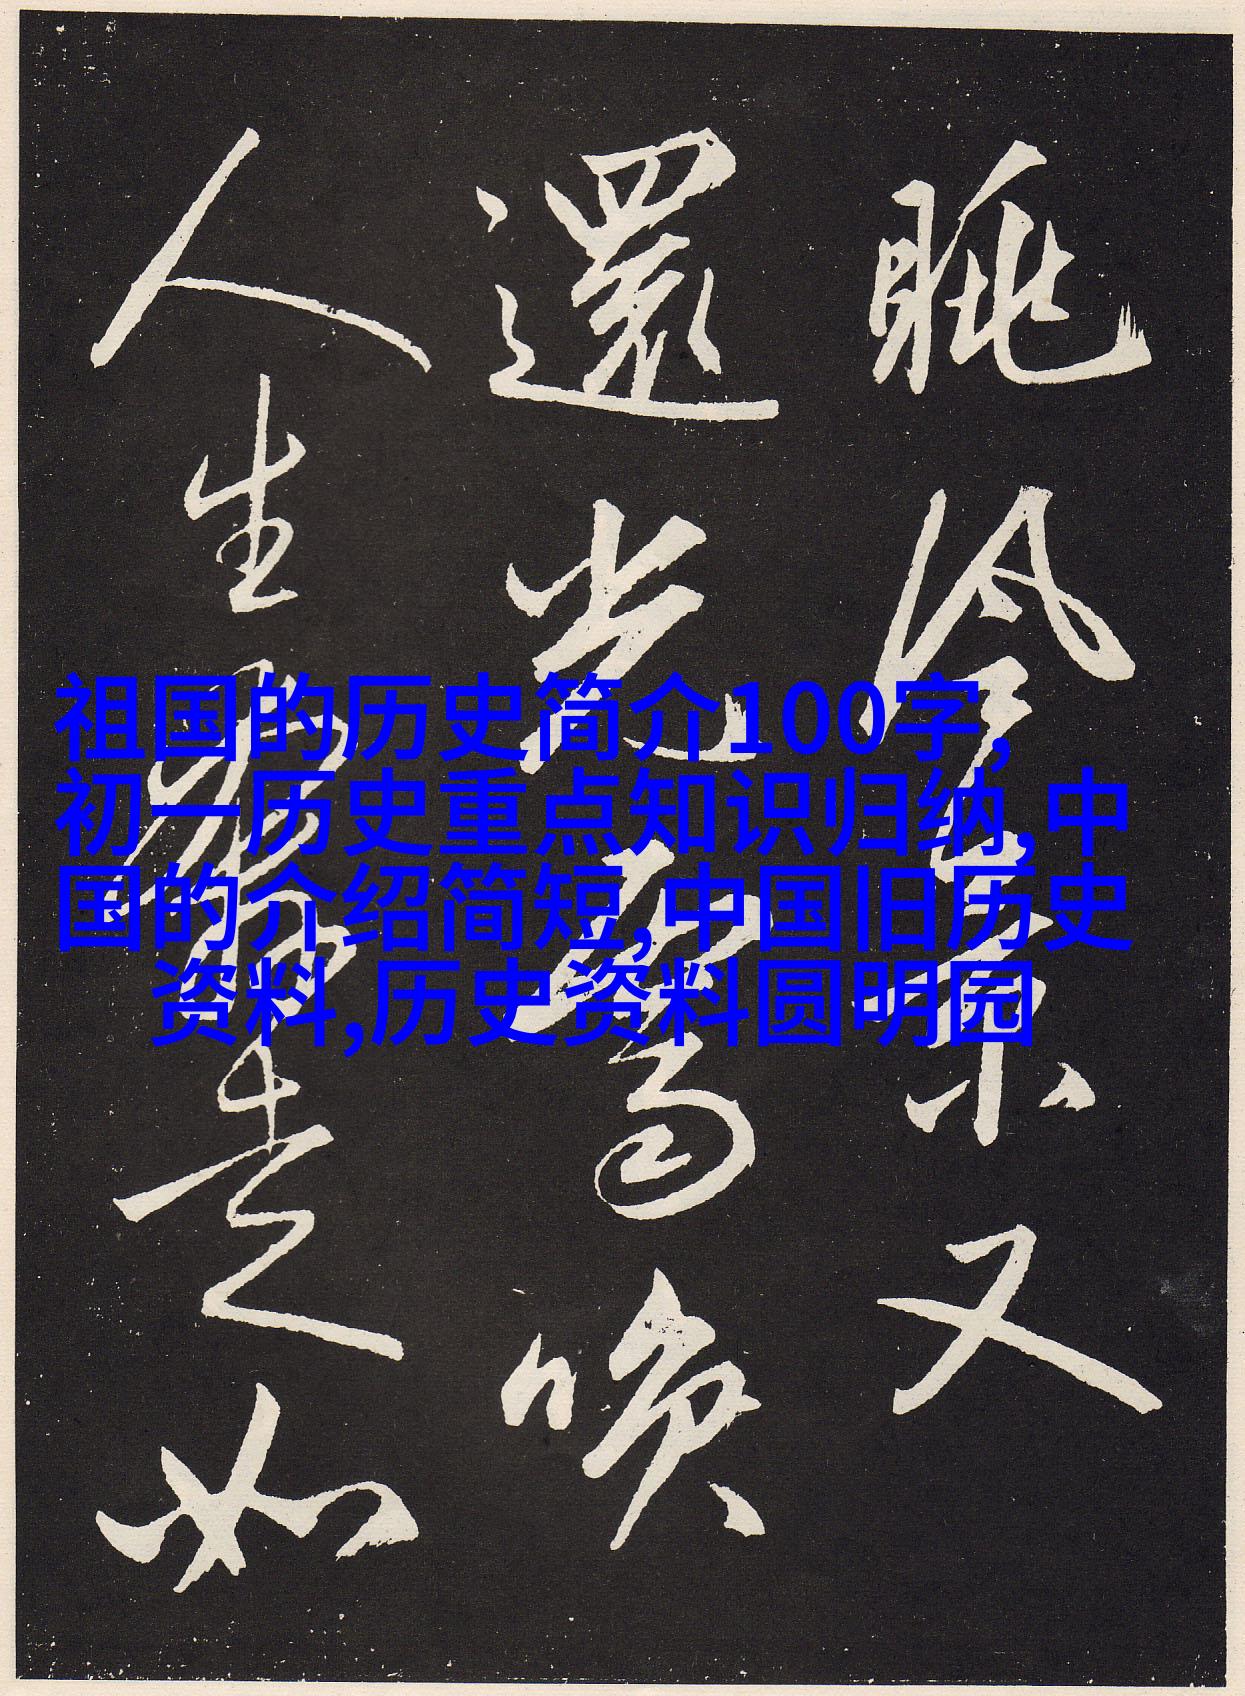 眺冷泉亦又
還光萬喚
人生
走如
祖国的历史简介100字,
初一历史重点知识归纳,中
国的介绍简短,中国旧历史
资料,历史资料圆明园